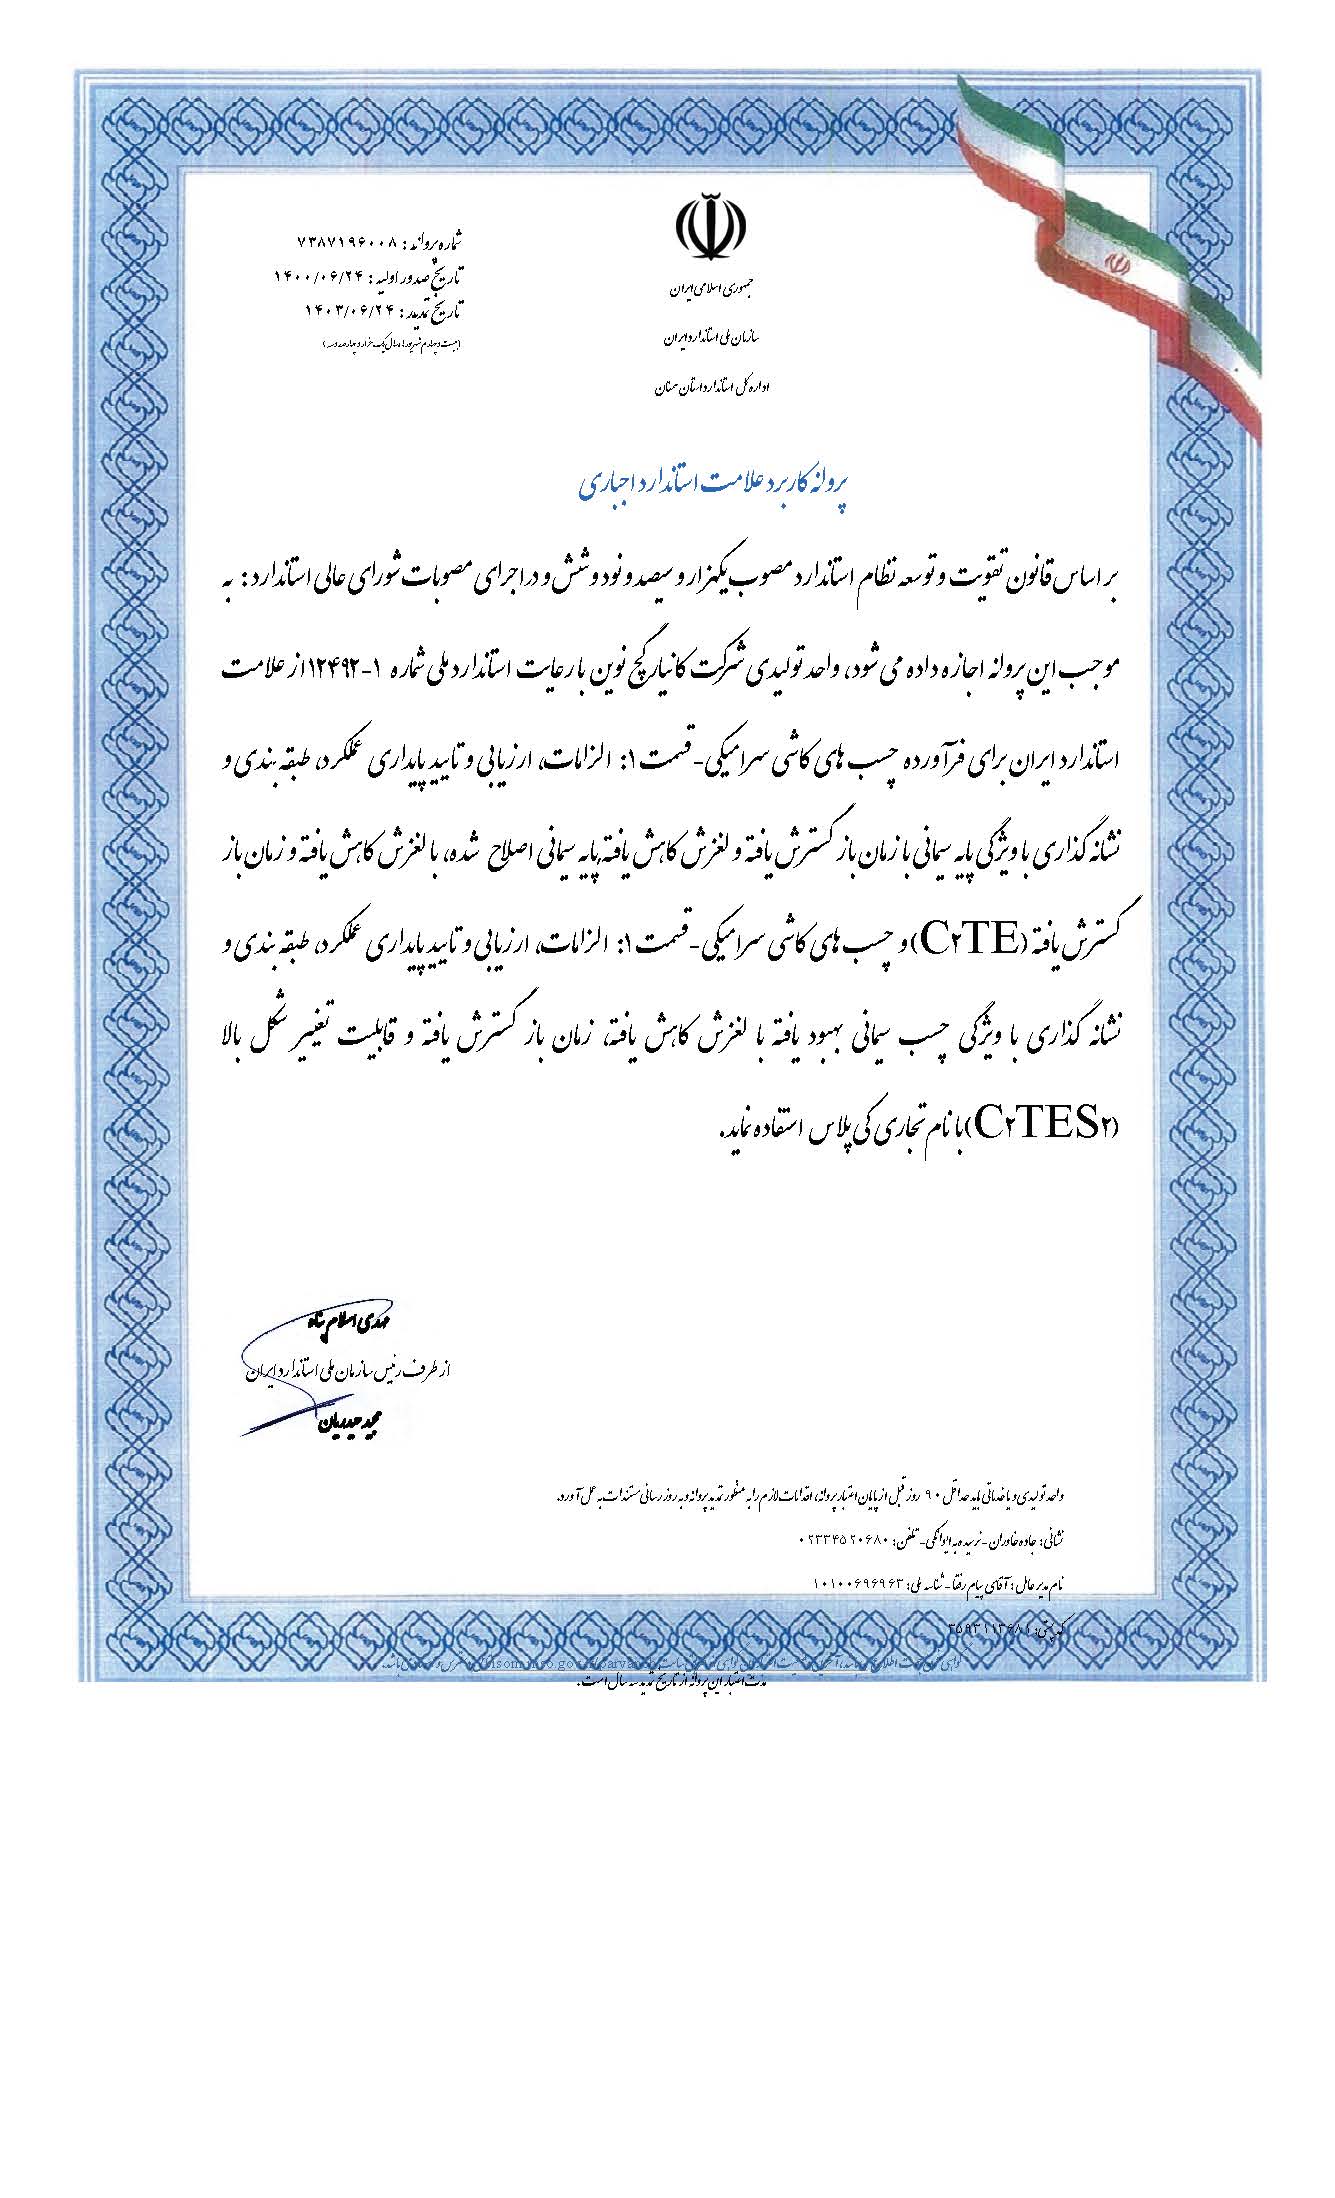 شماره پروانه : ۷۳۸۷۱۹۶۰۰۸
تاریخ صدور اولیه : ۱۴۰۰/۰۶/۲۴
تاریخ تمدید : ۱۴۰۳/۰۶/۲۴
جمهوری اسلامی ایران
سازمان ملی استاندارد ایران
اداره کل استاندارد استان سمنان
پروانه کاربرد علامت استاندارد اجباری
بر اساس قانون تقویت و توسعه نظام استاندارد مصوب یکهزار و سیصد و نود و شش و در اجرای مصوبات شورای عالی استاندارد : به
موجب این پروانه اجازه داده می شود، واحد تولیدی شرکت کانیار گچ نوین با رعایت استاندارد ملی شماره ۱-۱۲۴۹۲ از علامت
استاندارد ایران برای فرآورده چسب های کاشی سرامیکی-قسمت ۱: الزامات، ارزیابی و تایید پایداری عملکرد، طبقه بندی و
نشانه گذاری با ویژگی پایه سیمانی با زمان باز گسترش یافته و لغزش کاهش یافته،پایه سیمانی اصلاح شده، با لغزش کاهش یافته و زمان باز
گسترش یافته (C۲TE) و چسب های کاشی سرامیکی-قسمت ۱: الزامات، ارزیابی و تایید پایداری عملکرد، طبقه بندی و
نشانه گذاری با ویژگی چسب سیمانی بهبود یافته با لغزش کاهش یافته، زمان باز گسترش یافته و قابلیت تغییر شکل بالا
(C۲TES۲) با نام تجاری کی پلاس استفاده نماید.
مهدی اسلام پناه
از طرف رئیس سازمان ملی استاندارد ایران
مجید حیدریان
واحد تولیدی و یا خدماتی باید حداقل ۹۰ روز قبل از پایان اعتبار پروانه، اقدامات لازم را به منظور تمدید پروانه و به روز رسانی مستندات به عمل آورد.
نشانی: جاده خاوران - نرسیده به ایوانکی - تلفن: ۰۲۳۳۴۵۲۰۶۸۰
نام مدیر عامل : آقای پیام رفقا - شناسه ملی: ۱۰۱۰۰۶۹۶۹۶۳
کد پستی:
مدت اعتبار این پروانه از تاریخ تمدید سه سال است.